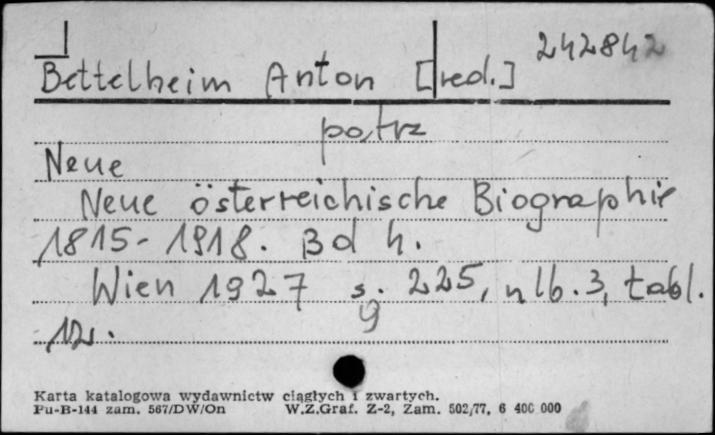 242842
Bettelheim Anton [red.]
patrz
Neue
Neue österreichische Biographie
1815-1918. Bd 4.
Wien 1927 s. 225, nlb. 3, tabl.
9
12.
Karta katalogowa wydawnictw ciągłych i zwartych.
Pu-B-144 zam. 567/DW/On W.Z.Graf. Z-2, Zam. 502/77, 6 400 000